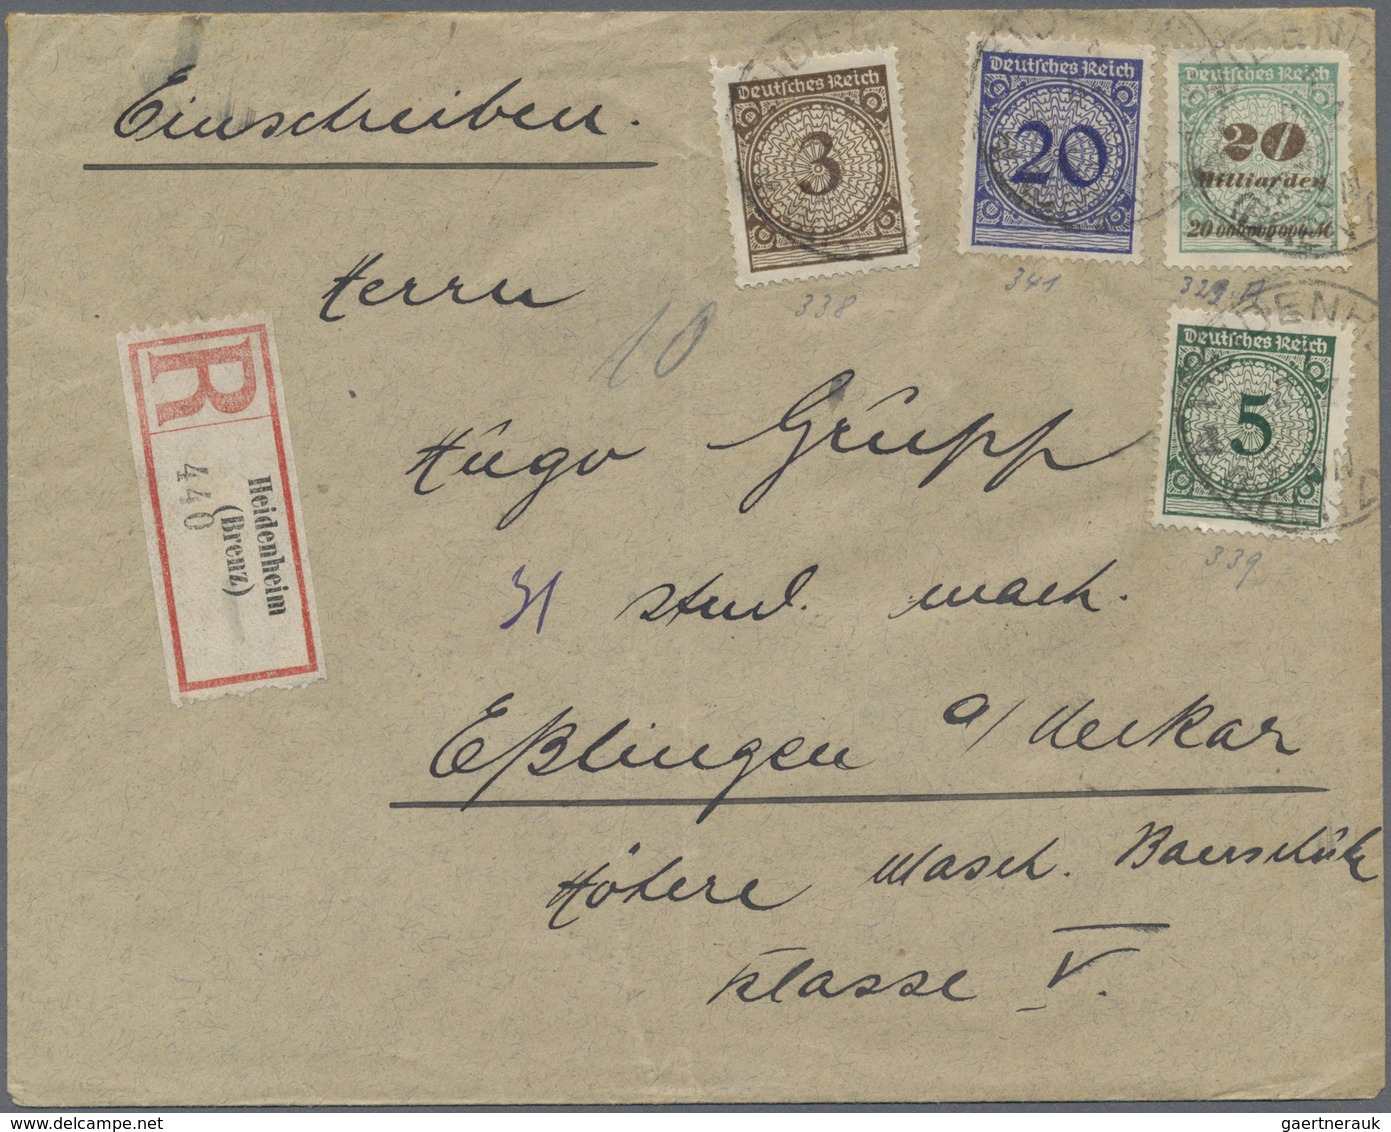 Einschreiben.
Deutsches Reich
3
Deutsches Reich
20
Deutsches Reich
20
Milliarden
20 000 000 000 M
338
341
329 A
Deutsches Reich
5
339
Herrn
10
R
440
Heidenheim
(Brenz)
Hugo Grupp
31 stud. mach.
Eßlingen a/Neckar
Höhere Masch. Bauschule
Klasse V.
gaertnerauk